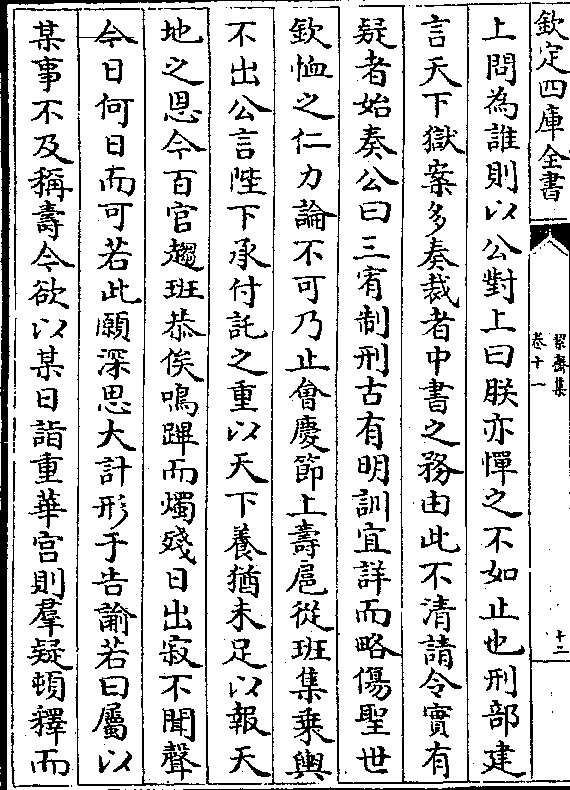 欽定四庫全書
絜齋集
卷十一
十三
上問為誰則以公對上曰朕亦憚之不如止也刑部建
言天下獄案多奏裁者中書之務由此不清請令實有
疑者始奏公曰三宥制刑古有明訓宜詳而略傷聖世
欽恤之仁力論不可乃止會慶節上壽扈從班集乗輿
不出公言陛下承付託之重以天下養猶未足以報天
地之恩今百官趨班恭俟鳴蹕而燭殘日出寂不聞聲
今日何日而可若此願深思大計形于告諭若曰屬以
某事不及稱壽今欲以某日詣重華宫則羣疑頓釋而